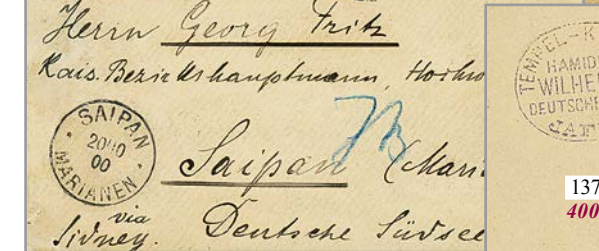 Herrn Georg Fritz
Kais. Bezirkshauptmann, Hochw
SAIPAN
20/10
00
MARIANEN
Saipan (Mari
via
Sidney.
Deutsche Südsee
TEMPEL-K
HAMID
WILHE
DEUTSCHE
JAF
137
400